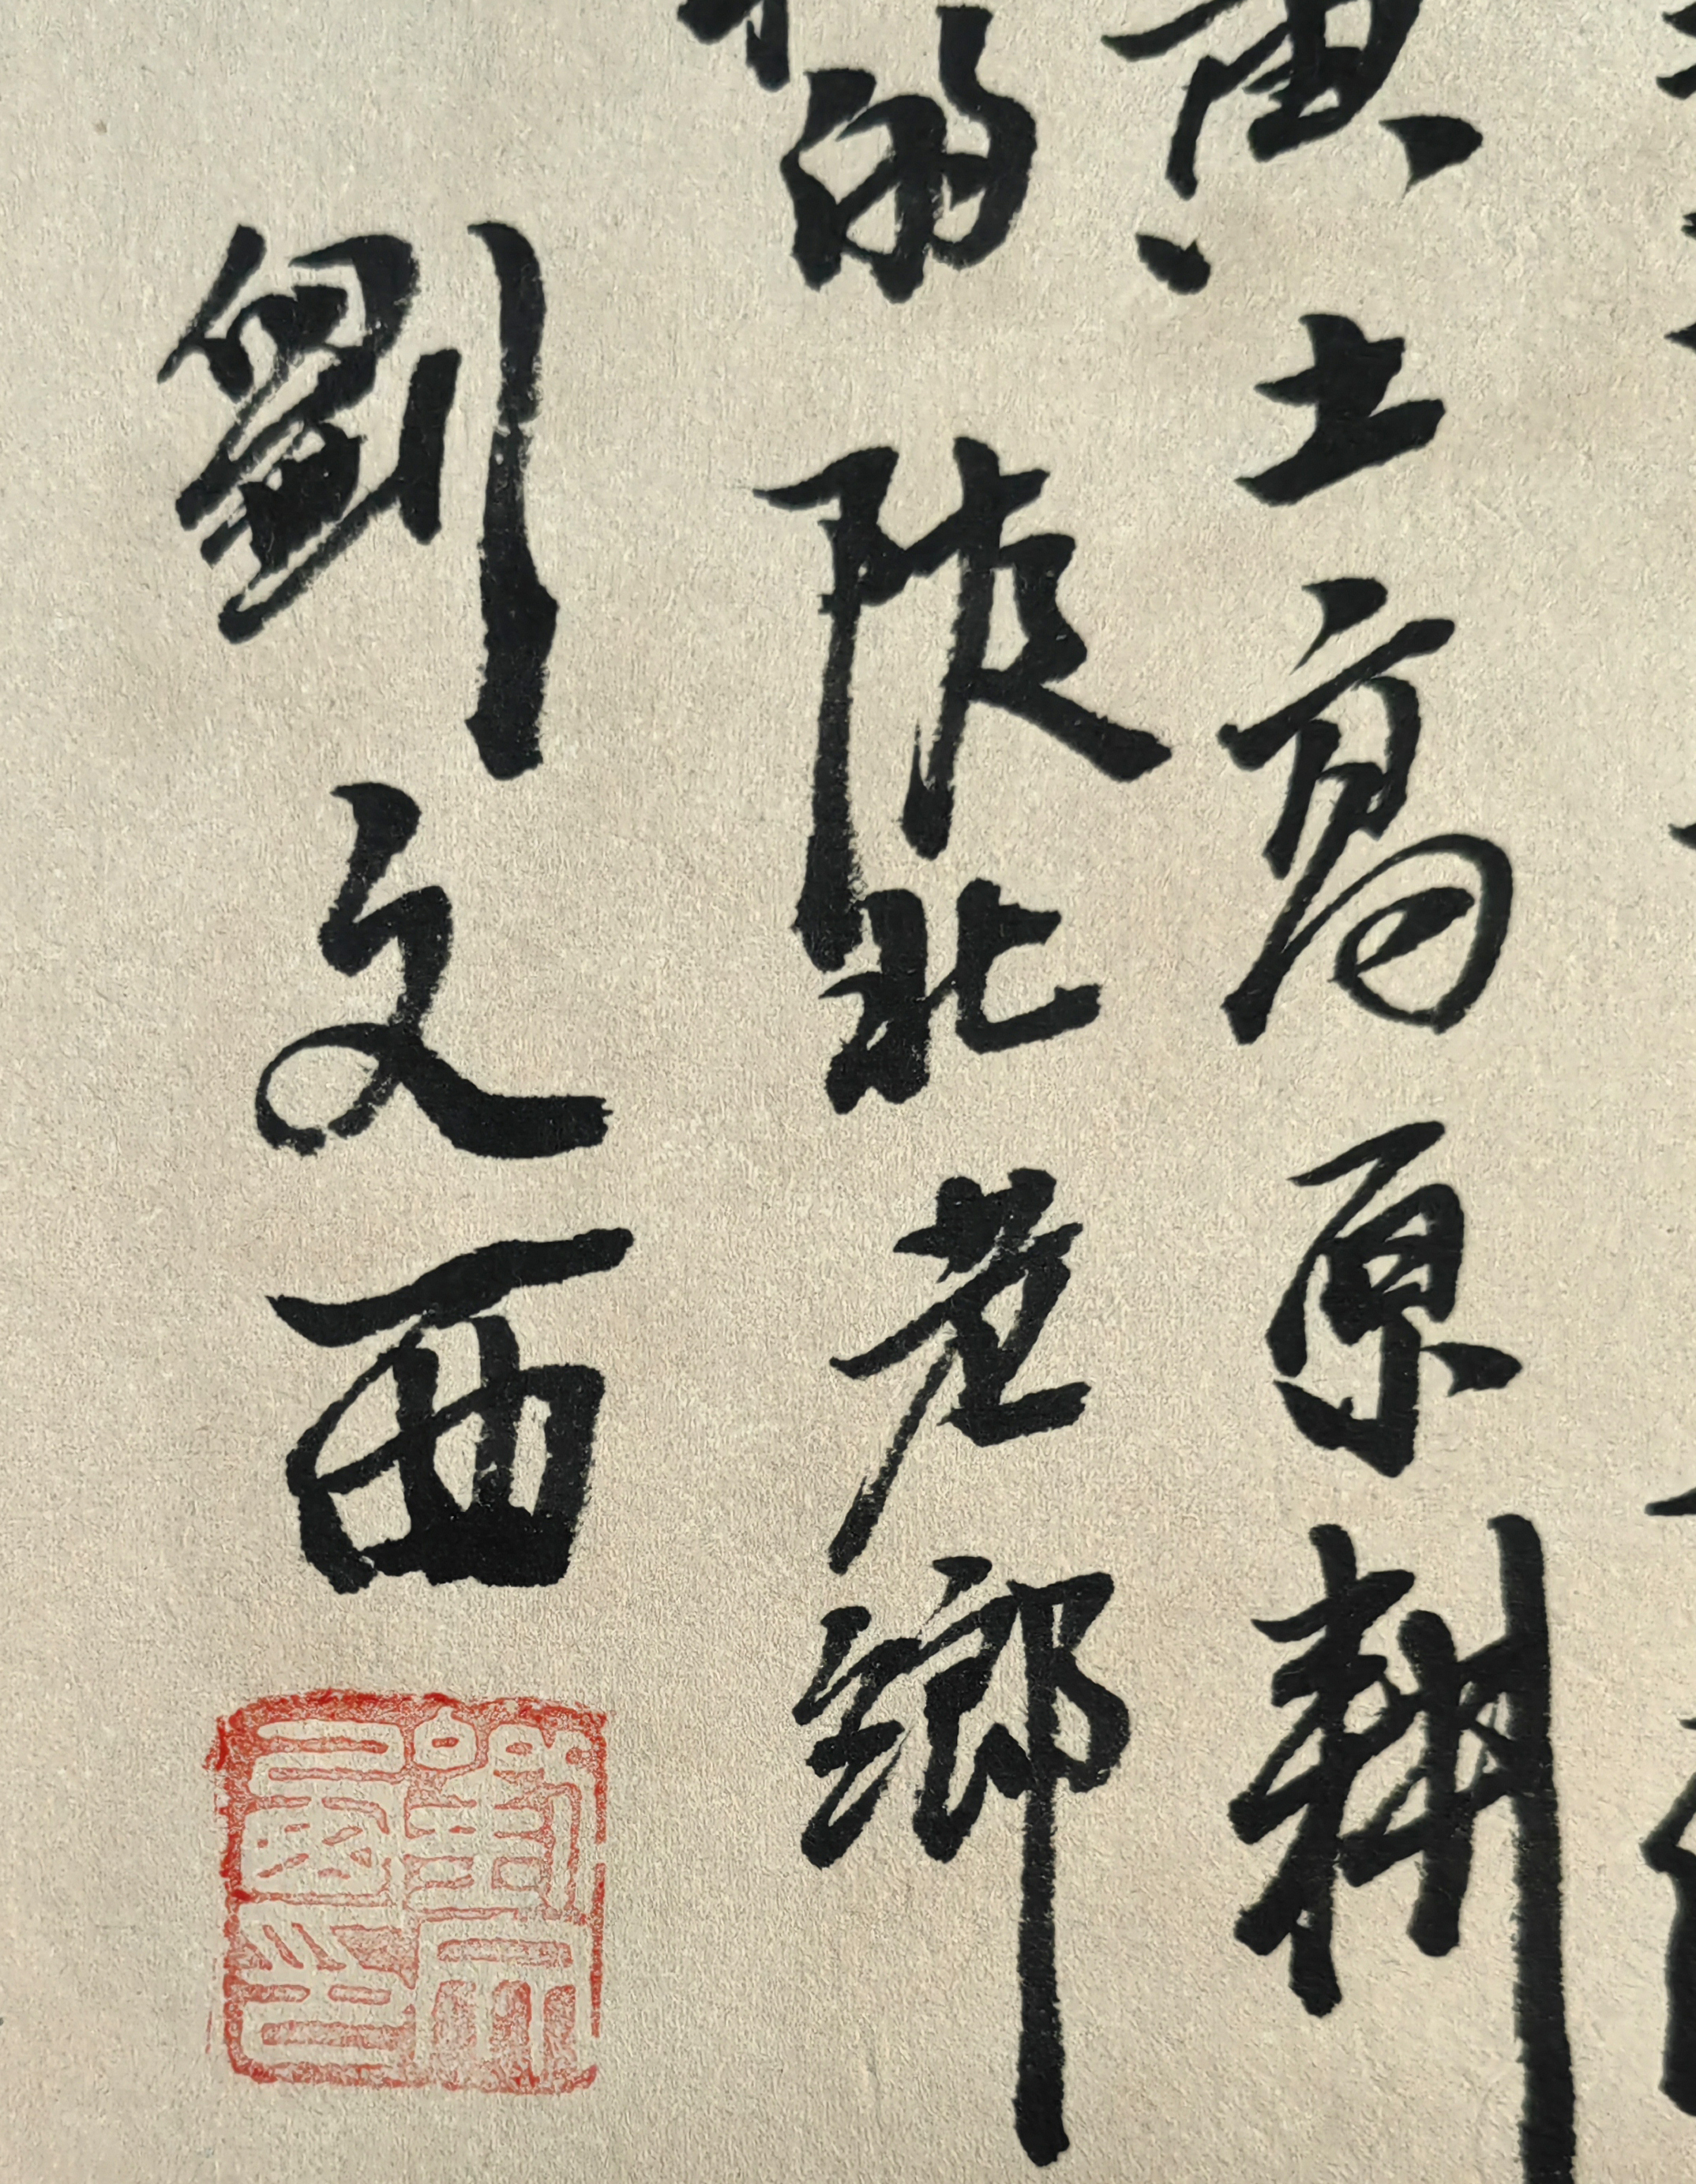 黄土高原耕
的陕北老鄉
劉文西